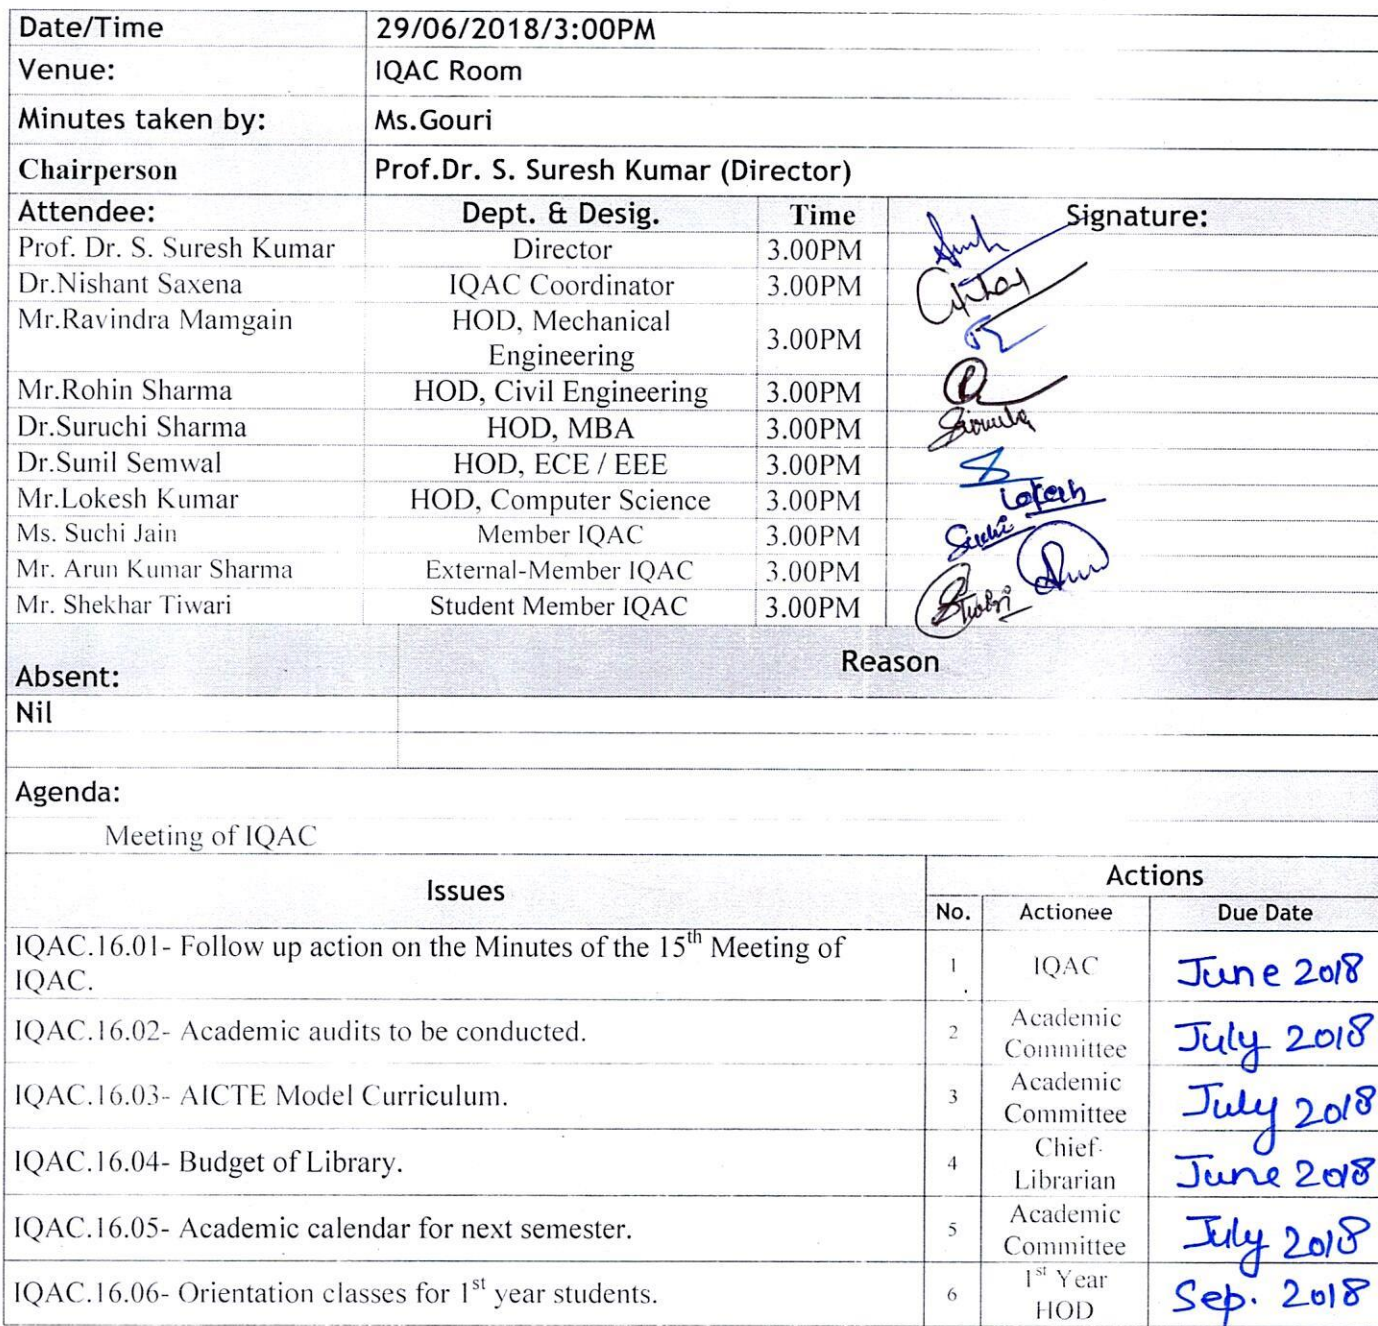 Date/Time 29/06/2018/3:00PM
Venue: IQAC Room
Minutes taken by: Ms.Gouri
Chairperson Prof.Dr. S. Suresh Kumar (Director)
Attendee: Dept. & Desig. Time Signature:
Prof. Dr. S. Suresh Kumar Director 3.00PM
Dr.Nishant Saxena IQAC Coordinator 3.00PM
Mr.Ravindra Mamgain HOD, Mechanical
Engineering 3.00PM
Mr.Rohin Sharma HOD, Civil Engineering 3.00PM
Dr.Suruchi Sharma HOD, MBA 3.00PM
Dr.Sunil Semwal HOD, ECE / EEE 3.00PM
Mr.Lokesh Kumar HOD, Computer Science 3.00PM Lokesh
Ms. Suchi Jain Member IQAC 3.00PM Suchi
Mr. Arun Kumar Sharma External-Member IQAC 3.00PM
Mr. Shekhar Tiwari Student Member IQAC 3.00PM
Absent: Reason
Nil
Agenda:
Meeting of IQAC
Issues Actions
No. Actionee Due Date
IQAC.16.01- Follow up action on the Minutes of the 15th Meeting of
IQAC. 1 IQAC June 2018
IQAC.16.02- Academic audits to be conducted. 2 Academic
Committee July 2018
IQAC.16.03- AICTE Model Curriculum. 3 Academic
Committee July 2018
IQAC.16.04- Budget of Library. 4 Chief-
Librarian June 2018
IQAC.16.05- Academic calendar for next semester. 5 Academic
Committee July 2018
IQAC.16.06- Orientation classes for 1st year students. 6 1st Year
HOD Sep. 2018